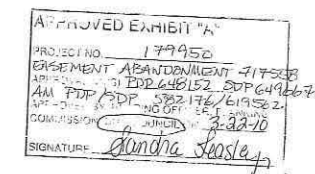 APPROVED EXHIBIT "A"
PROJECT NO. 179950
EASEMENT ABANDONMENT 717558
PDP 648152 SDP 649067
AM PDP/SDP 582176/619562
COMMISSION COUNCIL 3-23-10
SIGNATURE Sandra Teasley